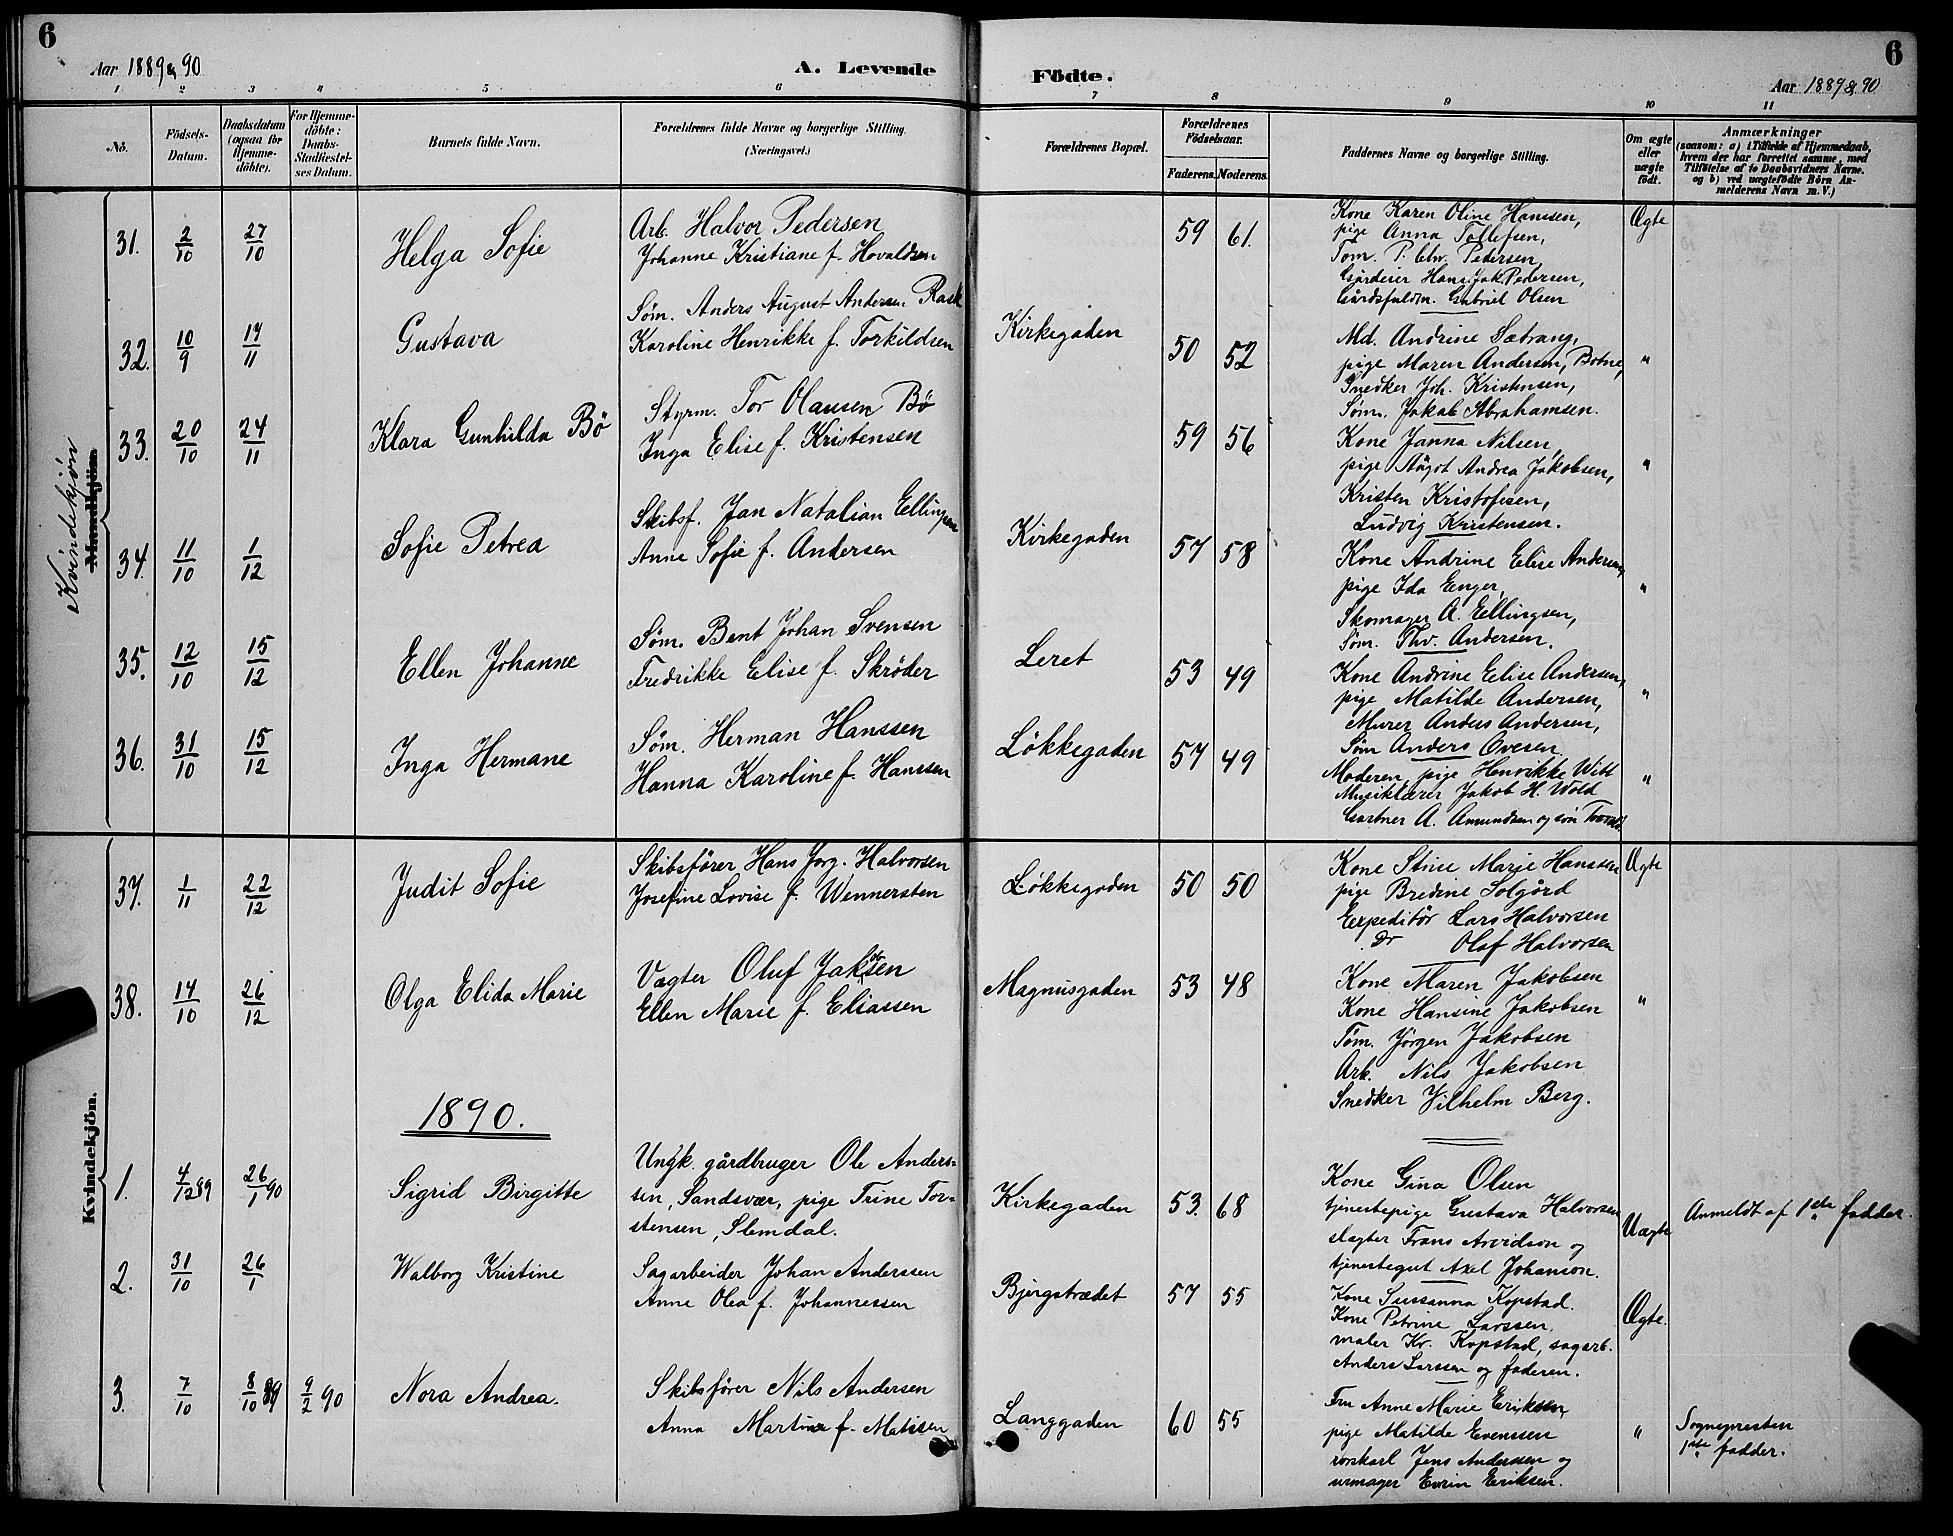 6
6
Aar 1889 & 90
A. Levende
Födte.
Aar 1889 & 90
1 2 3 4 5 6 7 8 9 10 11
No.
Födsels-Datum.
Daabsdatum (ogsaa for Hjemmedöbte).
For Hjemmedöbte: Daabs-Stadfæstelses Datum.
Barnets fulde Navn.
Forældrenes fulde Navne og borgerlige Stilling. (Næringsvei.)
Forældrenes Bopæl.
Forældrenes Födselsaar.
Faderens. Moderens.
Faddernes Navne og borgerlige Stilling.
Om ægte eller uægte födt.
Anmærkninger
(saasom: a) i Tilfælde af Hjemmedaab, hvem der har forrettet samme, med Tilföielse af to Daabsvidners Navne. og b) ved uægtefödte Börn Anmelderens Navn m. V.)
Kvindekjøn
Mandkjön.
31. 2/10 27/10 Helga Sofie
Arb. Halvor Pedersen
Johanne Kristiane f. Hovaldsen
59 61.
Kone Karen Oline Hanssen,
pige Anna Tollefsen,
Tøm. P. Chr. Pedersen
Gårdeier Hans Jak. Pedersen,
Gårdsfuldm. Gabriel Olsen
Ægte
32. 10/9 17/11 Gustava
Søm. Anders August Andersen Rask
Karoline Henrikke f. Torkildsen
Kirkegaden
50 52
Md. Andrine Sætrang,
pige Maren Andersen, Botne,
Snedker Joh. Kristensen,
Søm. Jakob Abrahamsen.
"
33. 20/10 24/11 Klara Gunhilda Bö
Styrm. Tor Olausen Bö
Inga Elise f. Kristensen
59 56
Kone Janna Nilsen,
pige Aagot Andrea Jakobsen,
Kristen Kristofesen,
Ludvig Kristensen.
"
34. 11/10 1/12 Sofie Petrea
Skibsf. Jan Natalian Ellingsen
Anne Sofie f. Andersen
Kirkegaden
57 58
Kone Andrine Elise Andersen,
pige Ida Enger,
Skomager A. Ellingsen,
Søm. Thv. Andersen.
"
35. 12/10 15/12 Ellen Johanne
Søm. Bent Johan Svensen
Fredrikke Elise f. Skröder
Leret
53 49
Kone Andrine Elise Andersen,
pige Matilde Andersen,
Murer Anders Andersen,
Søm Anders Ovesen
"
36. 31/10 15/12 Inga Hermane
Søm. Herman Hanssen
Hanna Karoline f. Hanssen
Løkkegaden
57 49
Moderen, pige Henrikke Witt
Musiklærer Jakob H. Wold
Gartner A. Amundsen og søn
"
37. 1/11 22/12 Judit Sofie
Skibsfører Hans Jørg. Halvorsen
Josefine Lovise f. Wennersten
Løkkegaden
50 50
Kone Stine Marie Hanssen
pige Bredine Solgård
Expeditör Lars Halvorsen
Do Olaf Halvorsen
Ægte
38. 14/10 26/12 Olga Elida Marie
Vægter Oluf Jakobsen
Ellen Marie f. Eliassen
Magnusgaden
53 48
Kone Maren Jakobsen
Kone Hansine Jakobsen
Tøm. Jörgen Jakobsen
Arb. Nils Jakobsen
Snedker Vilhelm Berg.
"
Kvindekjön.
1890.
1. 4/12 89 26/1 90 Sigrid Birgitte
Ungk. gårdbruger Ole Anders-
sen, Sandsvær, pige Trine Tor-
stensen, Slemdal.
Kirkegaden
53. 68
Kone Gina Olsen
tjenestepige Gustava Halvorsen
slagter Frans Arvidson og
tjenestegut Axel Johanson.
Uægte
Anmeldt af 1ste fadder.
2. 31/10 26/1 Walborg Kristine
Sagarbeider Johan Anderssen
Anne Olea f. Johannessen
Bjergstrædet
57 55
Kone Sussanna Kopstad.
Kone Petrine Larssen.
maler Kr. Kopstad, sagarb.
Anders Larssen og faderen.
Ægte.
3. 7/10 8/10 89 9/2 90 Nora Andrea.
Skibsfører Nils Andersen
Anna Martina f. Matisen
Langgaden
60 55
Fru Anne Marie Eriksen,
pige Matilde Evenssen
rorskarl Jens Anderssen og
urmager Eriksen.
"
Sognepresten
1ste fadder.